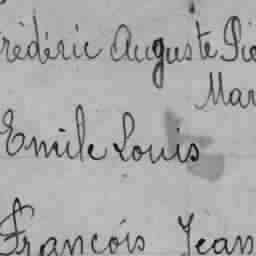 Frédéric Auguste Pie
Mar
Emile Louis
François Jean